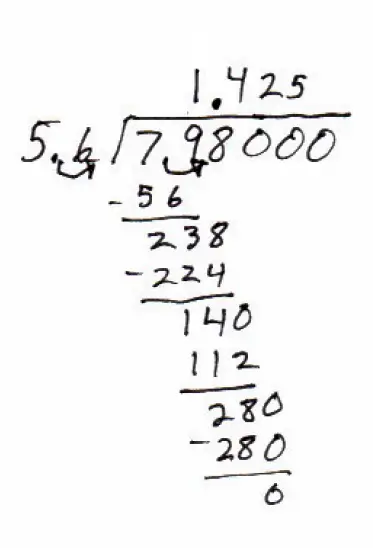 1.425
5.6 7.98000
- 56
238
- 224
140
112
280
- 280
0